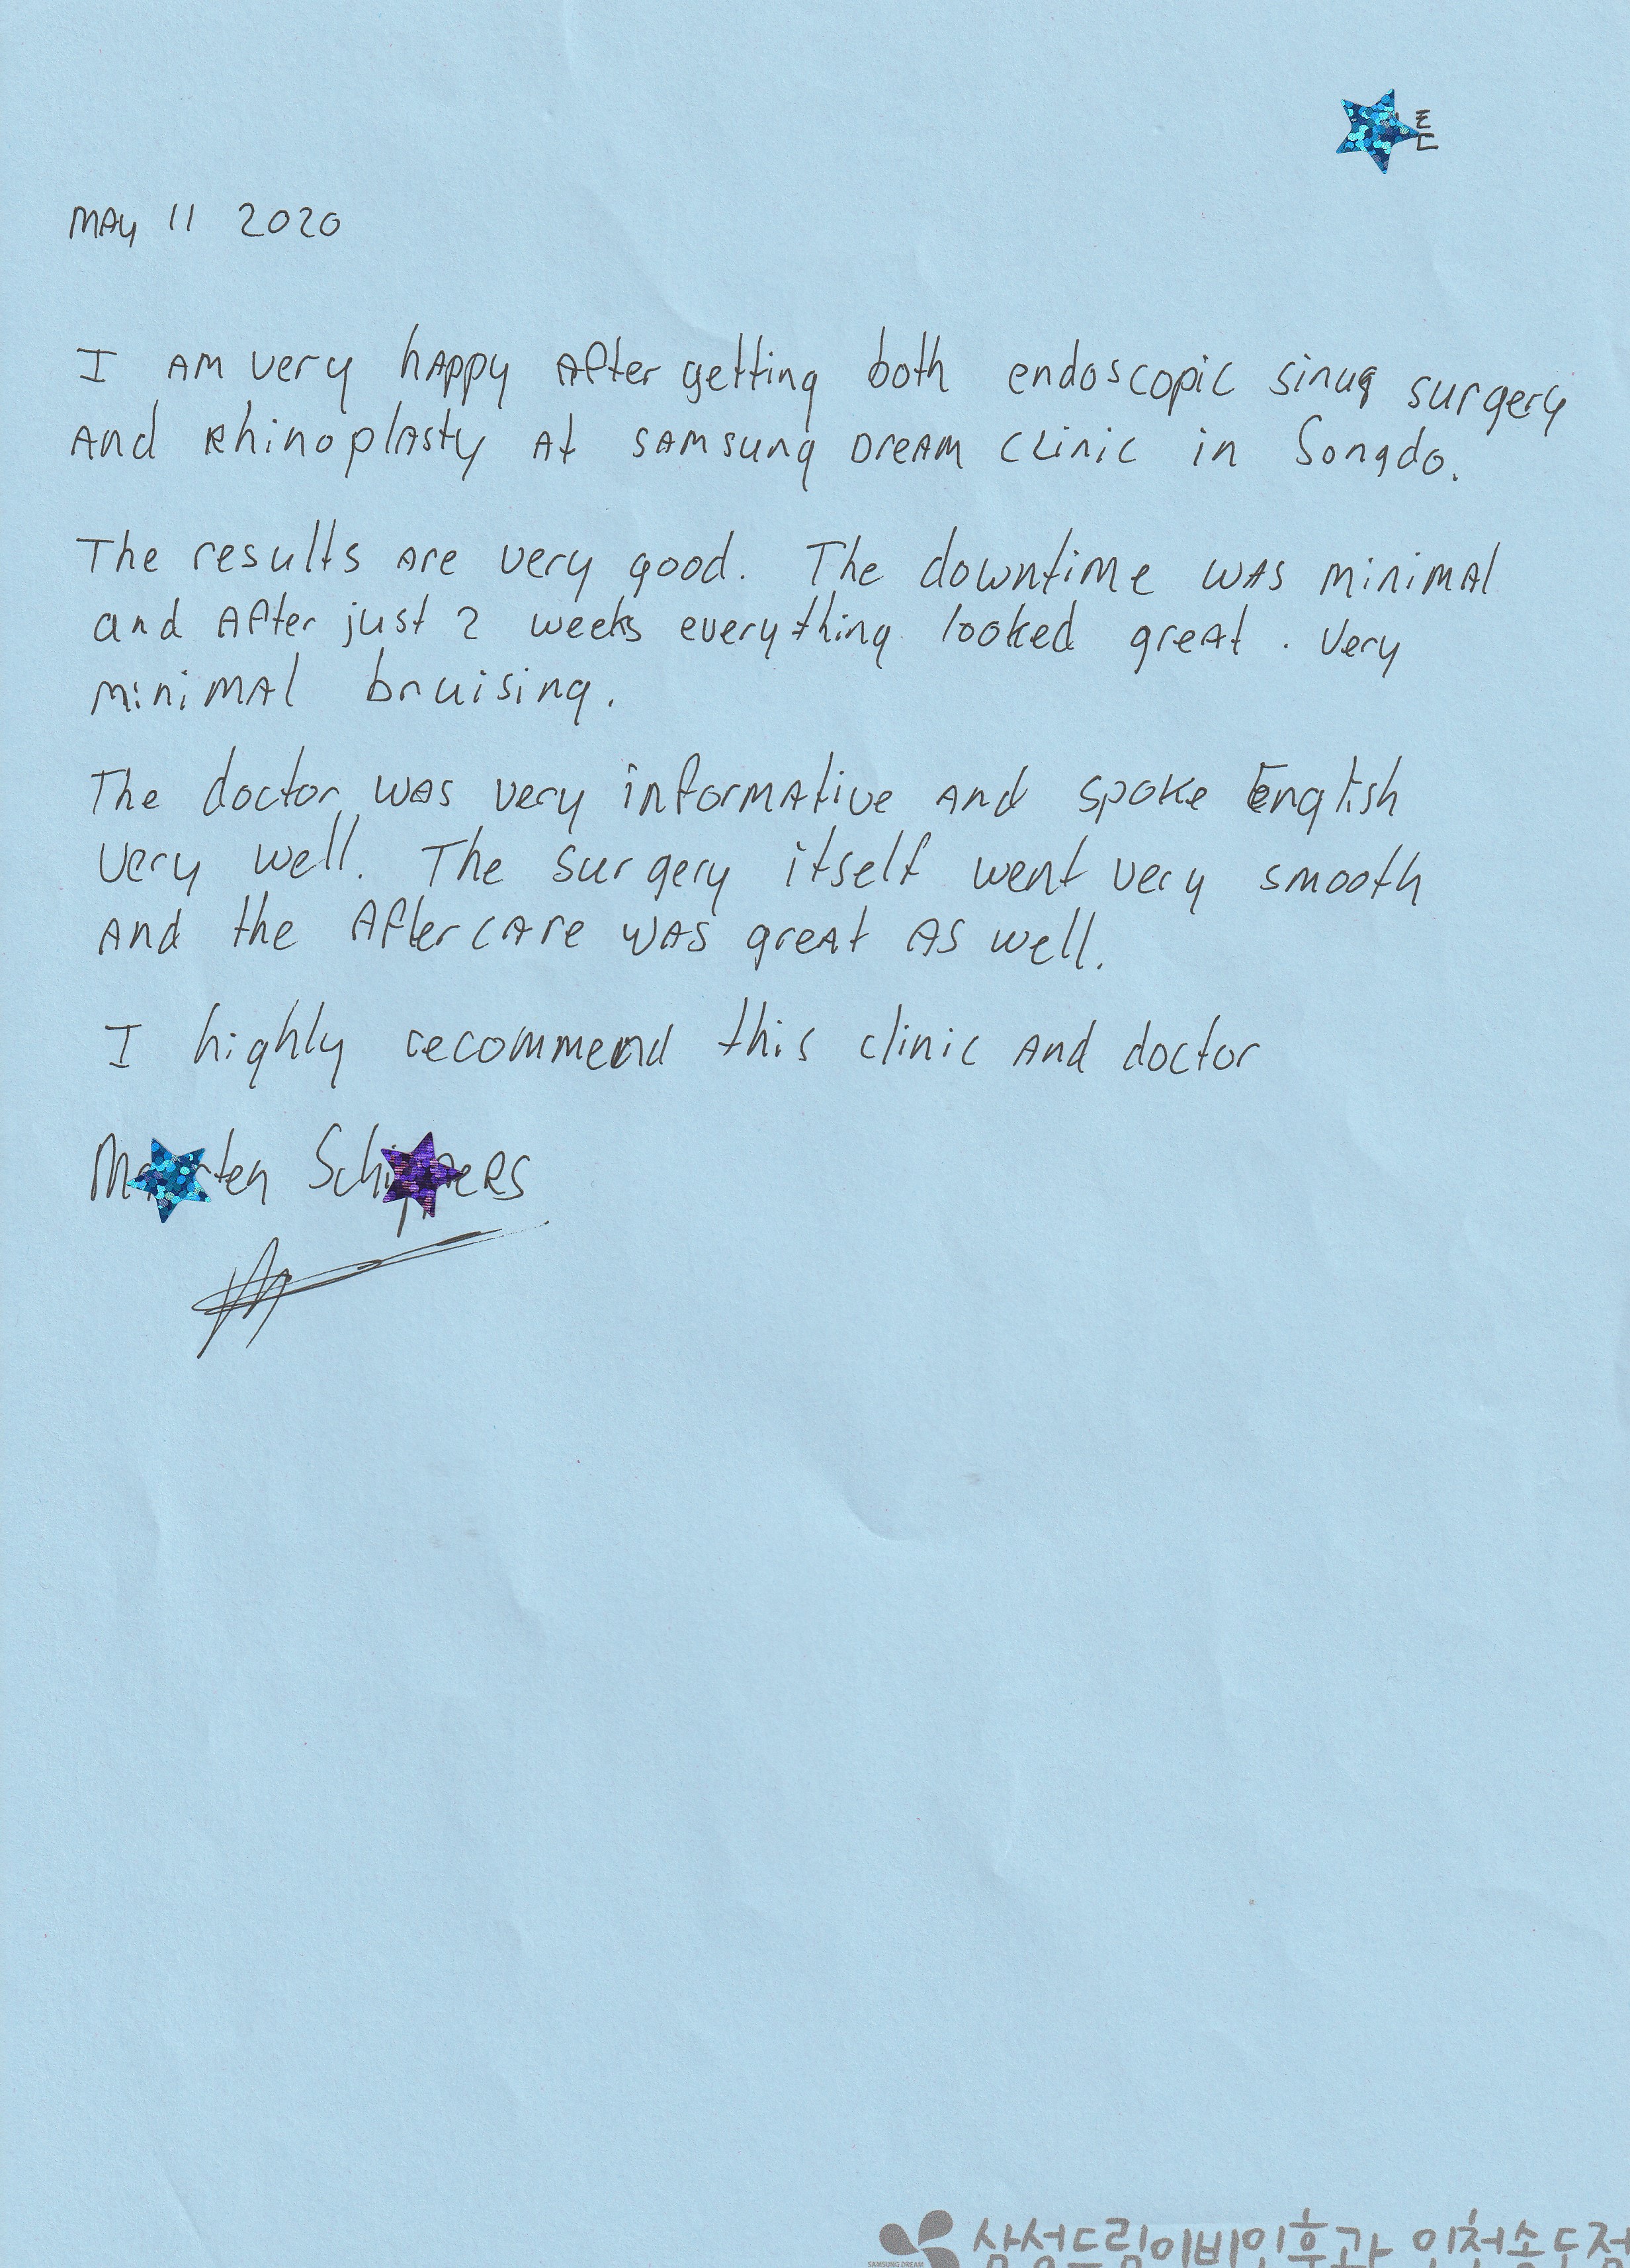 튼
MAY 11 2020
I AM very happy After getting both endoscopic sinus surgery
And Rhinoplasty At SAMSung Dream Clinic in Songdo.
The results are very good. The downtime was minimal
and After just 2 weeks everything looked great. Very
minimal bruising.
The doctor was very informative and spoke English
very well. The surgery itself went very smooth
And the Aftercare was great as well.
I highly recommend this clinic and doctor
삼성드림이비인후과 인천송도점
SAMSUNG DREAM